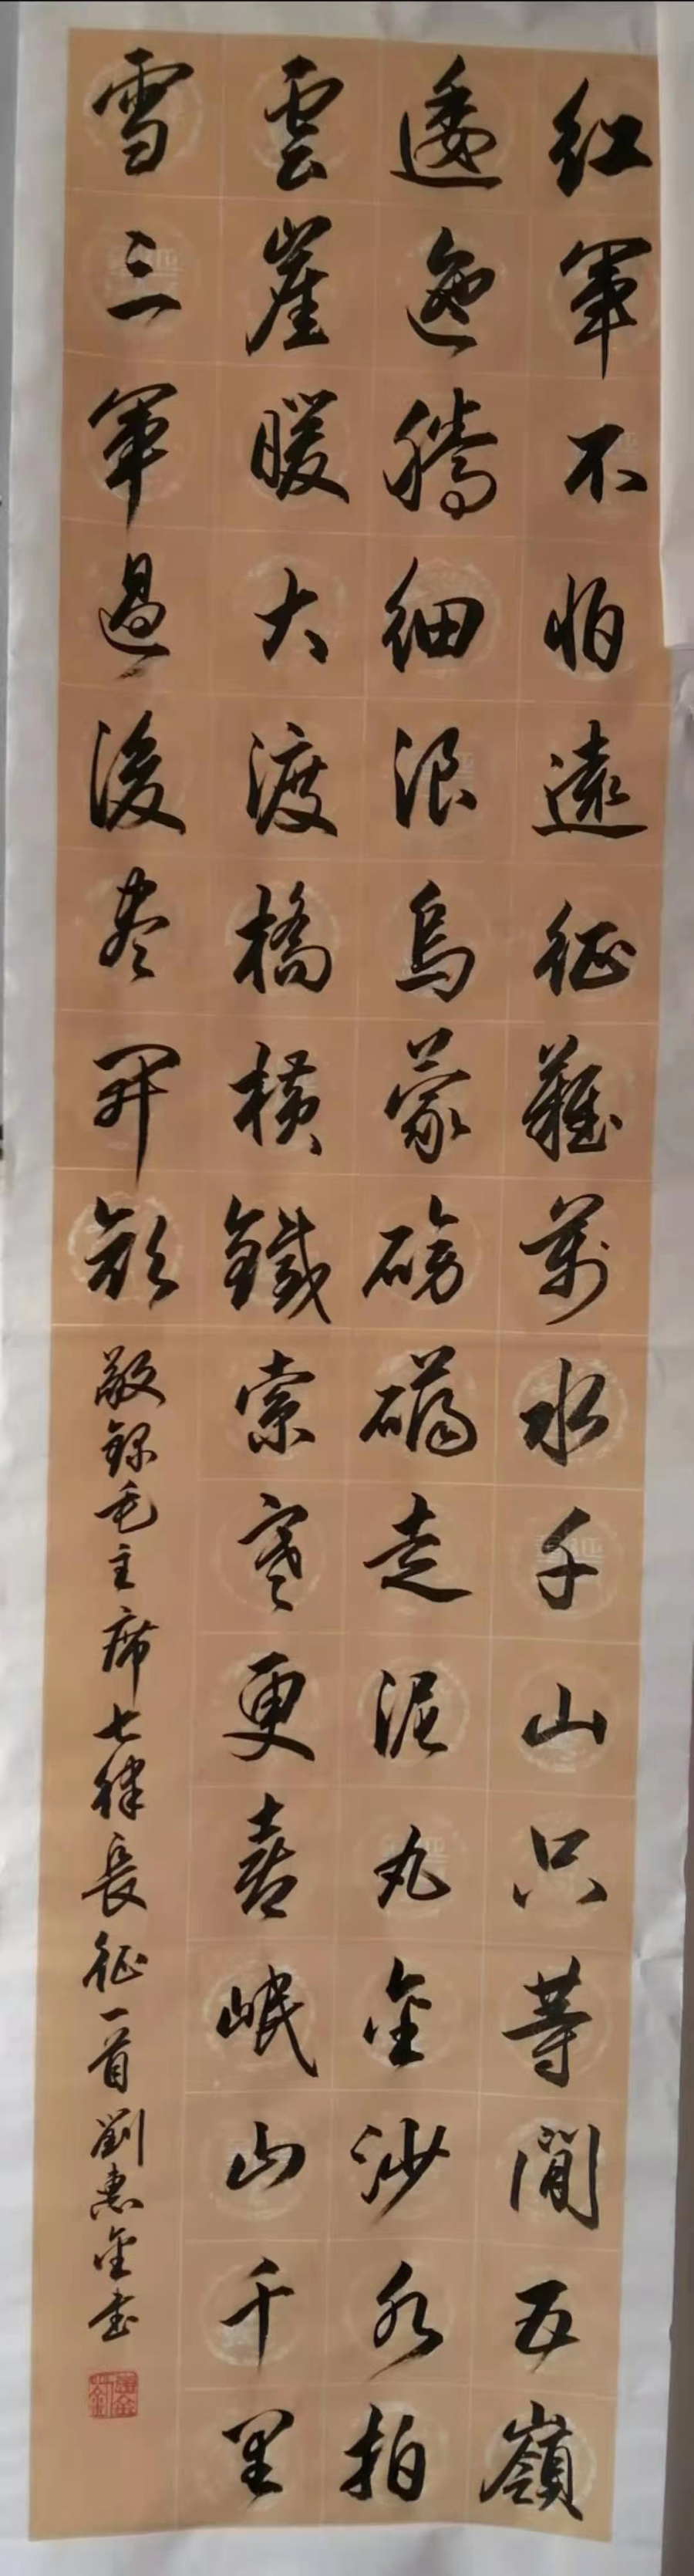 紅軍不怕遠征難萬水千山只等閒五嶺
逶迤騰細浪烏蒙磅礴走泥丸金沙水拍
雲崖暖大渡橋橫鐵索寒更喜岷山千里
雪三軍過後盡開顏 敬錄毛主席七律長征一首 劉惠金書